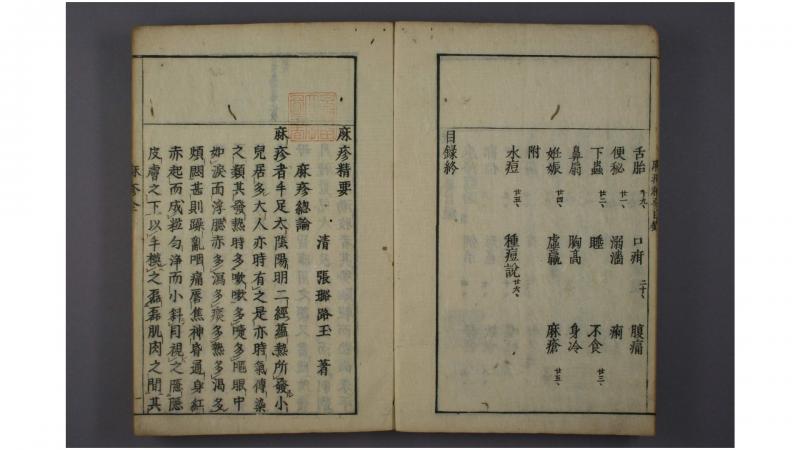 舌胎 十九、 口疳 二十、 腹痛
便秘 廿一、 溺濇 痢
下蟲 廿二、 睡 不食 廿三、
鼻扇 胸高 身冷
妊娠 廿四、 虛羸 麻瘡 廿五、
附
水痘 廿五、 種痘說 廿六、
目録終
麻疹精要
清 張璐路玉 著
麻疹總論
麻疹者手足太陰陽明二經蘊熱所發小
兒居多大人亦時有之是亦時氣傳染
之類其發熱時多咳嗽多嚏多眼中
如淚面浮腫多瀉多痰多熱多渴多
煩悶甚則躁亂咽痛脣焦神昏通身紅
赤起而成粒勻淨而小斜目視之隱隱
皮膚之下以手摸之磊磊肌肉之間其